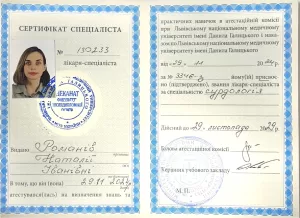 СЕРТИФІКАТ СПЕЦІАЛІСТА
№ 190233
лікаря-спеціаліста
ДЕКАНАТ
Видано Романів
Наталії
Іванівні
В тому, що він (вона) 29.11.2024
атестувалась(вся) на визначення знань та
практичних навичок в атестаційній комісії
при Львівському національному медичному
університеті імені Данила Галицького
Львівському національному медичному
університеті імені Данила Галицького
від 29.11 2024
за № 3348-з йому(їй) присвоєно
(підтверджено), звання лікаря-спеціаліста
за спеціальністю
Дійсний до 29 листопада 2029
Голова атестаційної комісії
Керівник учбового закладу
М.П.